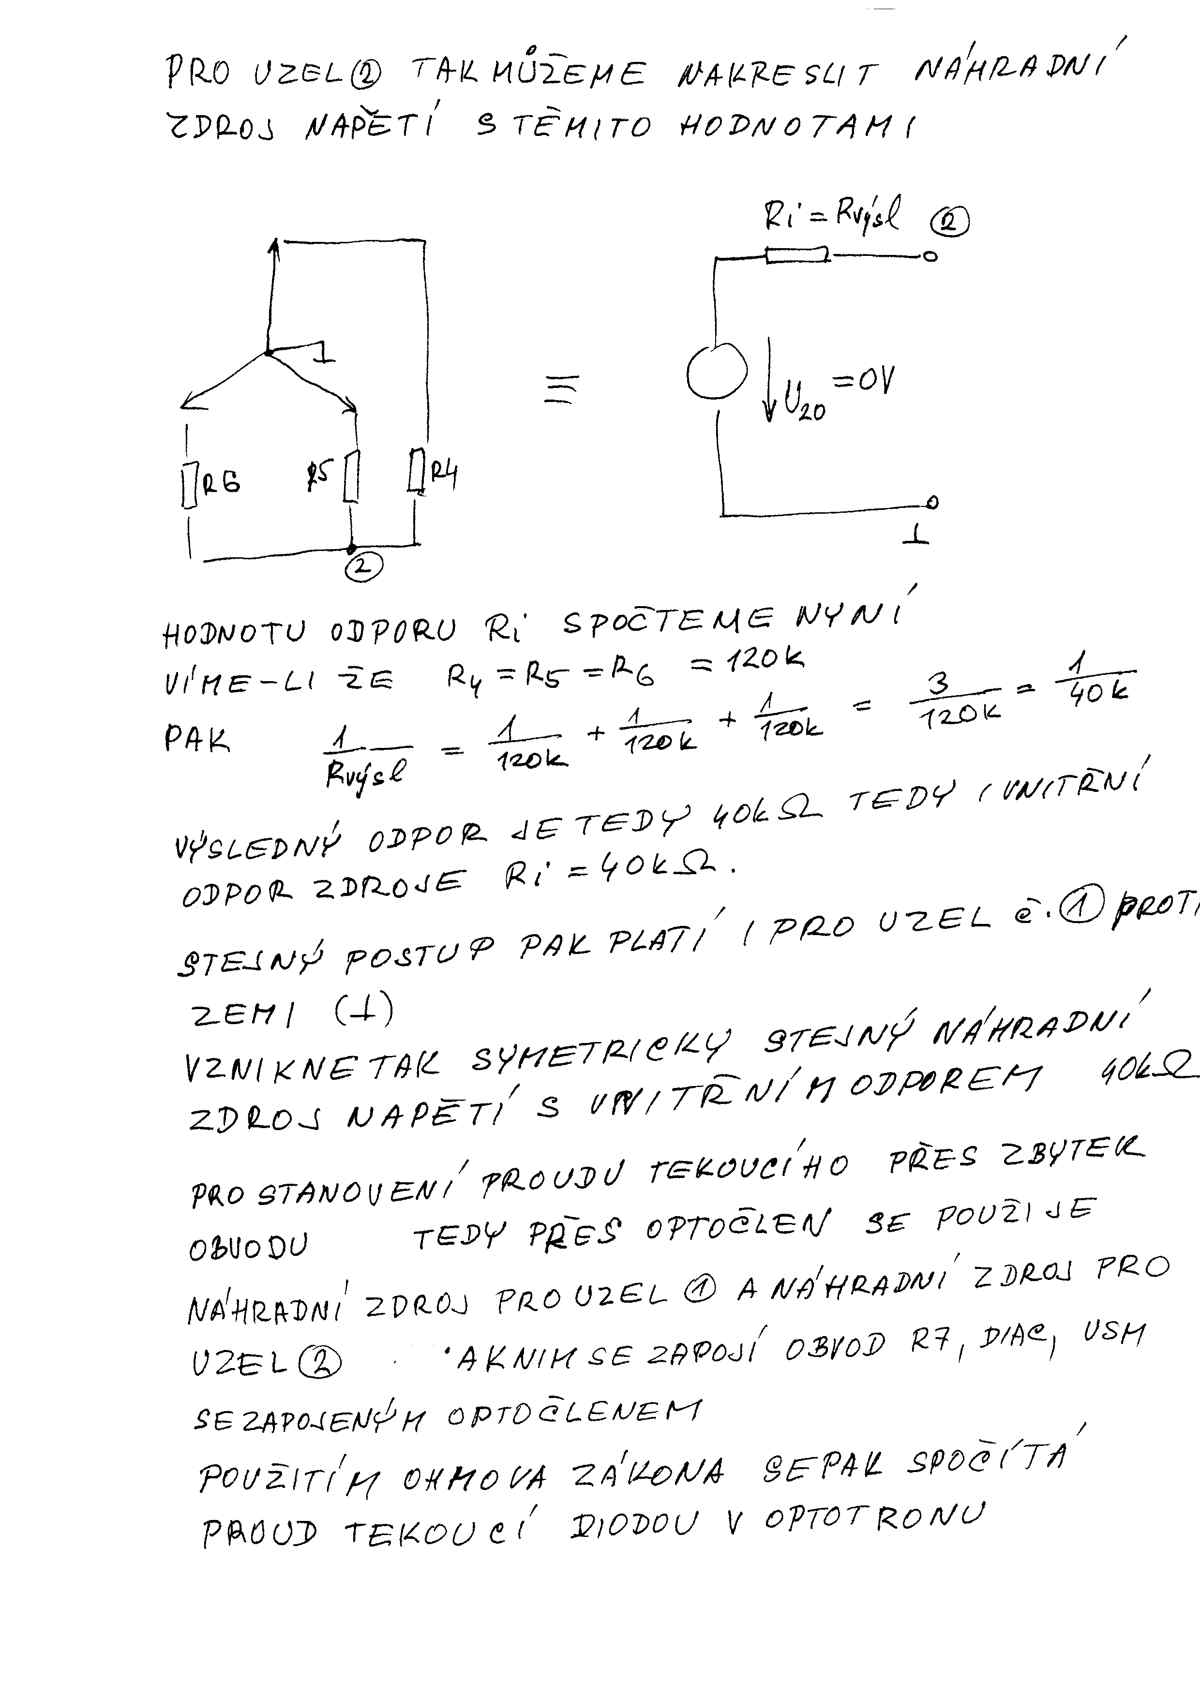 PRO UZEL ② TAK MŮŽEME NAKRESLIT NÁHRADNÍ
ZDROJ NAPĚTÍ S TĚMITO HODNOTAMI
Ri = Rvýsl ②
⊥
≡
U20 = 0V
R6 R5 R4
②
⊥
HODNOTU ODPORU Ri SPOČTEME NYNÍ
VÍME-LI ŽE R4 = R5 = R6 = 120k
PAK 1/Rvýsl = 1/120k + 1/120k + 1/120k = 3/120k = 1/40k
VÝSLEDNÝ ODPOR JE TEDY 40kΩ TEDY I VNITŘNÍ
ODPOR ZDROJE Ri = 40kΩ.
STEJNÝ POSTUP PAK PLATÍ I PRO UZEL č. ① PROTI
ZEMI (⊥)
VZNIKNE TAK SYMETRICKY STEJNÝ NÁHRADNÍ
ZDROJ NAPĚTÍ S VNITŘNÍM ODPOREM 40kΩ
PRO STANOVENÍ PROUDU TEKOUCÍHO PŘES ZBYTEK
OBVODU TEDY PŘES OPTOČLEN SE POUŽIJE
NÁHRADNÍ ZDROJ PRO UZEL ① A NÁHRADNÍ ZDROJ PRO
UZEL ② A K NIM SE ZAPOJÍ OBVOD R7, DIAC, USM
SE ZAPOJENÝM OPTOČLENEM
POUŽITÍM OHMOVA ZÁKONA SE PAK SPOČÍTÁ
PROUD TEKOUCÍ DIODOU V OPTOTRONU